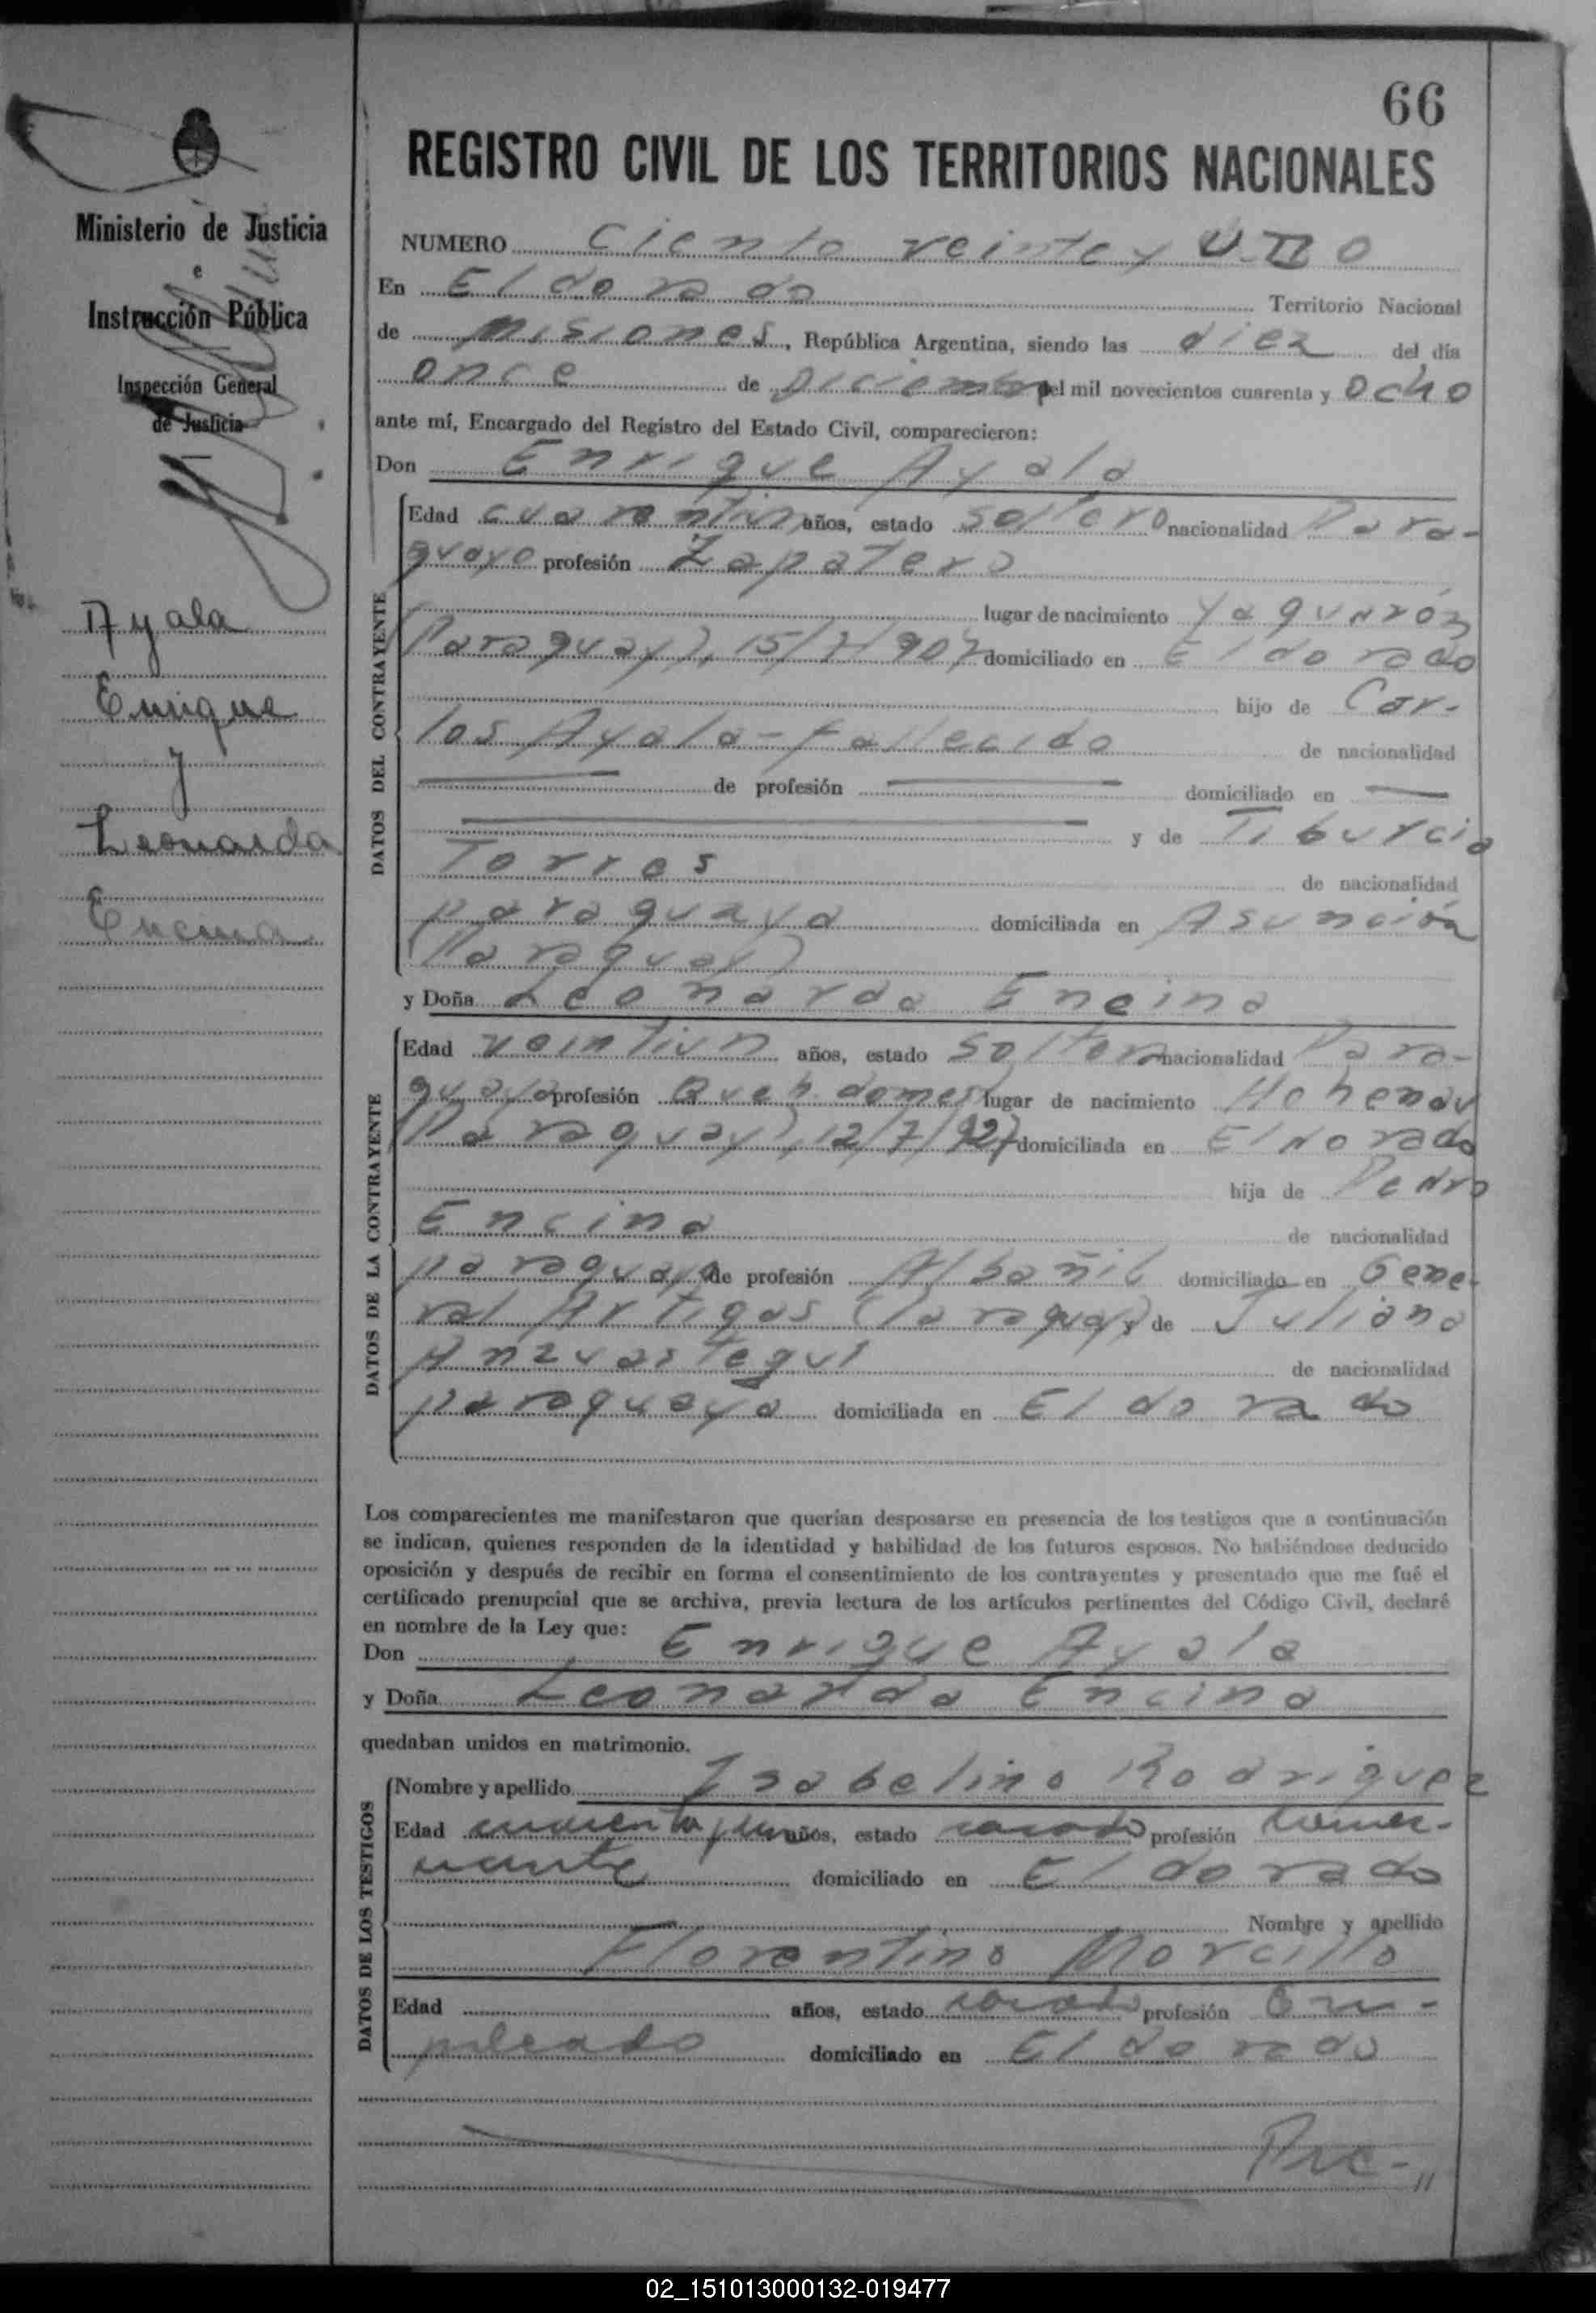 66
REGISTRO CIVIL DE LOS TERRITORIOS NACIONALES
Ministerio de Justicia
e
Instrucción Pública
Inspección General
de Justicia
Ayala
Enrique
y
Leonarda
Encina
NUMERO Ciento veinte y uno
En Eldorado Territorio Nacional
de Misiones, República Argentina, siendo las diez del día
once de Diciembre del mil novecientos cuarenta y ocho
ante mí, Encargado del Registro del Estado Civil, comparecieron:
Don Enrique Ayala
DATOS DEL CONTRAYENTE
Edad cuarentiun años, estado soltero nacionalidad Para-
guayo profesión Zapatero
lugar de nacimiento Yaguarón
(Paraguay), 15/7/907 domiciliado en Eldorado
hijo de Car-
los Ayala - fallecido de nacionalidad
de profesión domiciliado en
y de Tiburcia
Torres de nacionalidad
paraguaya domiciliada en Asunción
(Paraguay)
y Doña Leonarda Encina
DATOS DE LA CONTRAYENTE
Edad veintiun años, estado soltera nacionalidad Para-
guaya profesión Queh. domest lugar de nacimiento Hohenau
(Paraguay), 12/7/927 domiciliada en Eldorado
hija de Pedro
Encina de nacionalidad
paraguaya de profesión Albañil domiciliado en Gene-
ral Artigas (Paraguay) y de Juliana
Anzuastegui de nacionalidad
paraguaya domiciliada en Eldorado
Los comparecientes me manifestaron que querían desposarse en presencia de los testigos que a continuación
se indican, quienes responden de la identidad y habilidad de los futuros esposos. No habiéndose deducido
oposición y después de recibir en forma el consentimiento de los contrayentes y presentado que me fué el
certificado prenupcial que se archiva, previa lectura de los artículos pertinentes del Código Civil, declaré
en nombre de la Ley que:
Don Enrique Ayala
y Doña Leonarda Encina
quedaban unidos en matrimonio.
DATOS DE LOS TESTIGOS
Nombre y apellido Isabelino Rodriguez
Edad cuarenta y un años, estado casado profesión Comer-
ciante domiciliado en Eldorado
Nombre y apellido
Florentino Morcillo
Edad años, estado casado profesión Em-
pleado domiciliado en Eldorado
02_151013000132-019477